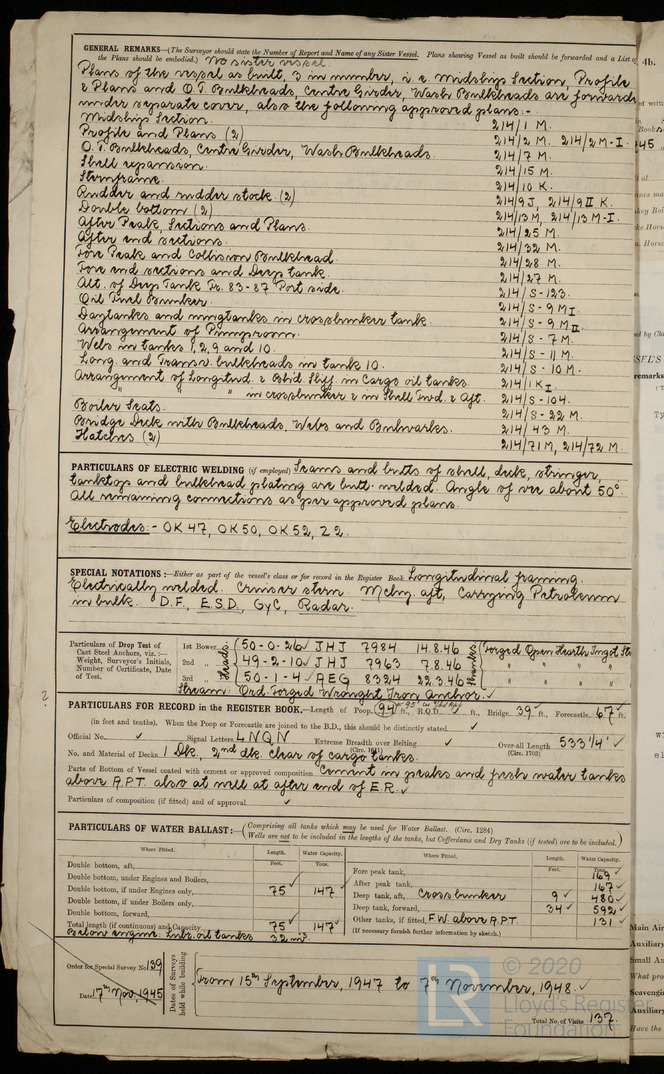 GENERAL REMARKS—(The Surveyor should state the Number of Report and Name of any Sister Vessel. Plans showing Vessel as built should be forwarded and a List of
the Plans should be embodied.) No sister vessel.
Plans of the vessel as built, 3 in number, i.e. Midship Section, Profile
& Plans and O.T. Bulkheads, Centre Girder, Wash Bulkheads are forwarded
under separate cover, also the following approved plans:-
Midship Section. 214/1 M.
Profile and Plans (2) 214/2 M. 214/2 M-I.
O.T. Bulkheads, Centre Girder, Wash Bulkheads. 214/7 M.
Shell expansion. 214/15 M.
Sternframe. 214/10 K.
Rudder and rudder stock. (2) 214/9 J, 214/9 II K.
Double bottom (2) 214/13 M, 214/13 M-I.
After Peak, Sections and Plans. 214/25 M.
After end sections. 214/32 M.
Fore Peak and Collision Bulkhead. 214/28 M.
Fore end sections and Deep tank. 214/27 M.
Alt. of Deep Tank Fr. 83-87 Port side. 214/S-123.
Oil Fuel Bunker. 214/S-9 M I
Daytanks and wingtanks in crossbunker tank. 214/S-9 M II.
Arrangement of Pumproom. 214/S-7 M.
Webs in tanks 1, 2, 9 and 10. 214/S-11 M.
Long. and Transv. bulkheads in tank 10. 214/S-10 M.
Arrangement of Longitud. & Bhd. Stiff. in Cargo oil tanks. 214/1 K I.
" " " in crossbunker & in Shell Fwd. & Aft. 214/S-104.
Boiler Seats. 214/S-22 M.
Bridge Deck with Bulkheads, Webs and Bulwarks. 214/43 M.
Hatches (2) 214/71 M, 214/72 M.
PARTICULARS OF ELECTRIC WELDING (if employed) Seams and butts of shell, deck, stringer,
tanktop and bulkhead plating are butt-welded. Angle of vee about 50°.
All remaining connections as per approved plans.
Electrodes:- OK 47, OK 50, OK 52, 22.
SPECIAL NOTATIONS:—Either as part of the vessel's class or for record in the Register Book. Longitudinal framing.
Electrically welded. Cruiser stern. Mchy. aft, Carrying Petroleum
in bulk. D.F., E.S.D., GyC, Radar.
Particulars of Drop Test of
Cast Steel Anchors, viz.:—
Weight, Surveyor's Initials,
Number of Certificate, Date
of Test.
Heads:
1st Bower 50-0-26 JHJ 7984 14.8.46
2nd " 49-2-10 JHJ 7963 7.8.46
3rd " 50-1-4 AEG 8324 22.3.46
Shanks: Forged Open Hearth Ingot St
Stream Ord. Forged Wrought Iron Anchor.
PARTICULARS FOR RECORD in the REGISTER BOOK.—Length of Poop, 94 ft., R.Q.D. ft., Bridge, 39 ft., Forecastle, 67 ft.
(in feet and tenths). When the Poop or Forecastle are joined to the B.D., this should be distinctly stated
Official No. Signal Letters LNQN Extreme Breadth over Belting (Circ. 1611) Over-all Length (Circ. 1703) 533'1/4"
No. and Material of Decks. 1 Dk., 2nd dk. clear of cargo tanks.
Parts of Bottom of Vessel coated with cement or approved composition Cement in peaks and fresh water tanks
above A.P.T. also at well at after end of E.R.
Particulars of composition (if fitted) and of approval
PARTICULARS OF WATER BALLAST:—(Comprising all tanks which may be used for Water Ballast. (Circ. 1284)
Wells are not to be included in the lengths of the tanks, but Cofferdams and Dry Tanks (if tested) are to be included.)
Where Fitted. Length. Water Capacity.
Feet. Tons.
Double bottom, aft,
Double bottom, under Engines and Boilers,
Double bottom, if under Engines only, 75 147
Double bottom, if under Boilers only,
Double bottom, forward,
Total length (if continuous) and Capacity 75 147
Below engine: Lubr. oil tanks 32 m³.
Where Fitted. Length. Water Capacity.
Feet. Tons.
Fore peak tank, 169
After peak tank, 167
Deep tank, aft, Crossbunker 9 480
Deep tank, forward, 34 592
Other tanks, if fitted, F.W. above A.P.T. 131
(If necessary furnish further information by sketch.)
Order for Special Survey No. 139
Date 17th Nov. 1945
Dates of Surveys
held while building
From 15th September, 1947 to 7th November, 1948.
Total No. of Visits 137
© 2020
Lloyd's Register
Foundation
LR
4b.